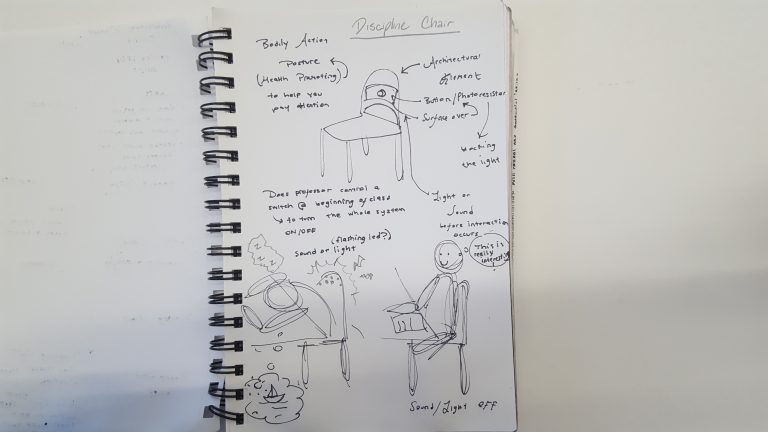 Discipline Chair
Bodily Action
Posture
(Health Promoting)
to help you
pay attention
Architectural
Element
Button/Photoresistor
Surface over
blocking
the light
Light or
Sound
before interaction
occurs
Does professor control a
switch @ beginning of class
to turn the whole system
ON/OFF
(flashing led?)
Sound or light
This is
really
interesting
Sound/Light OFF